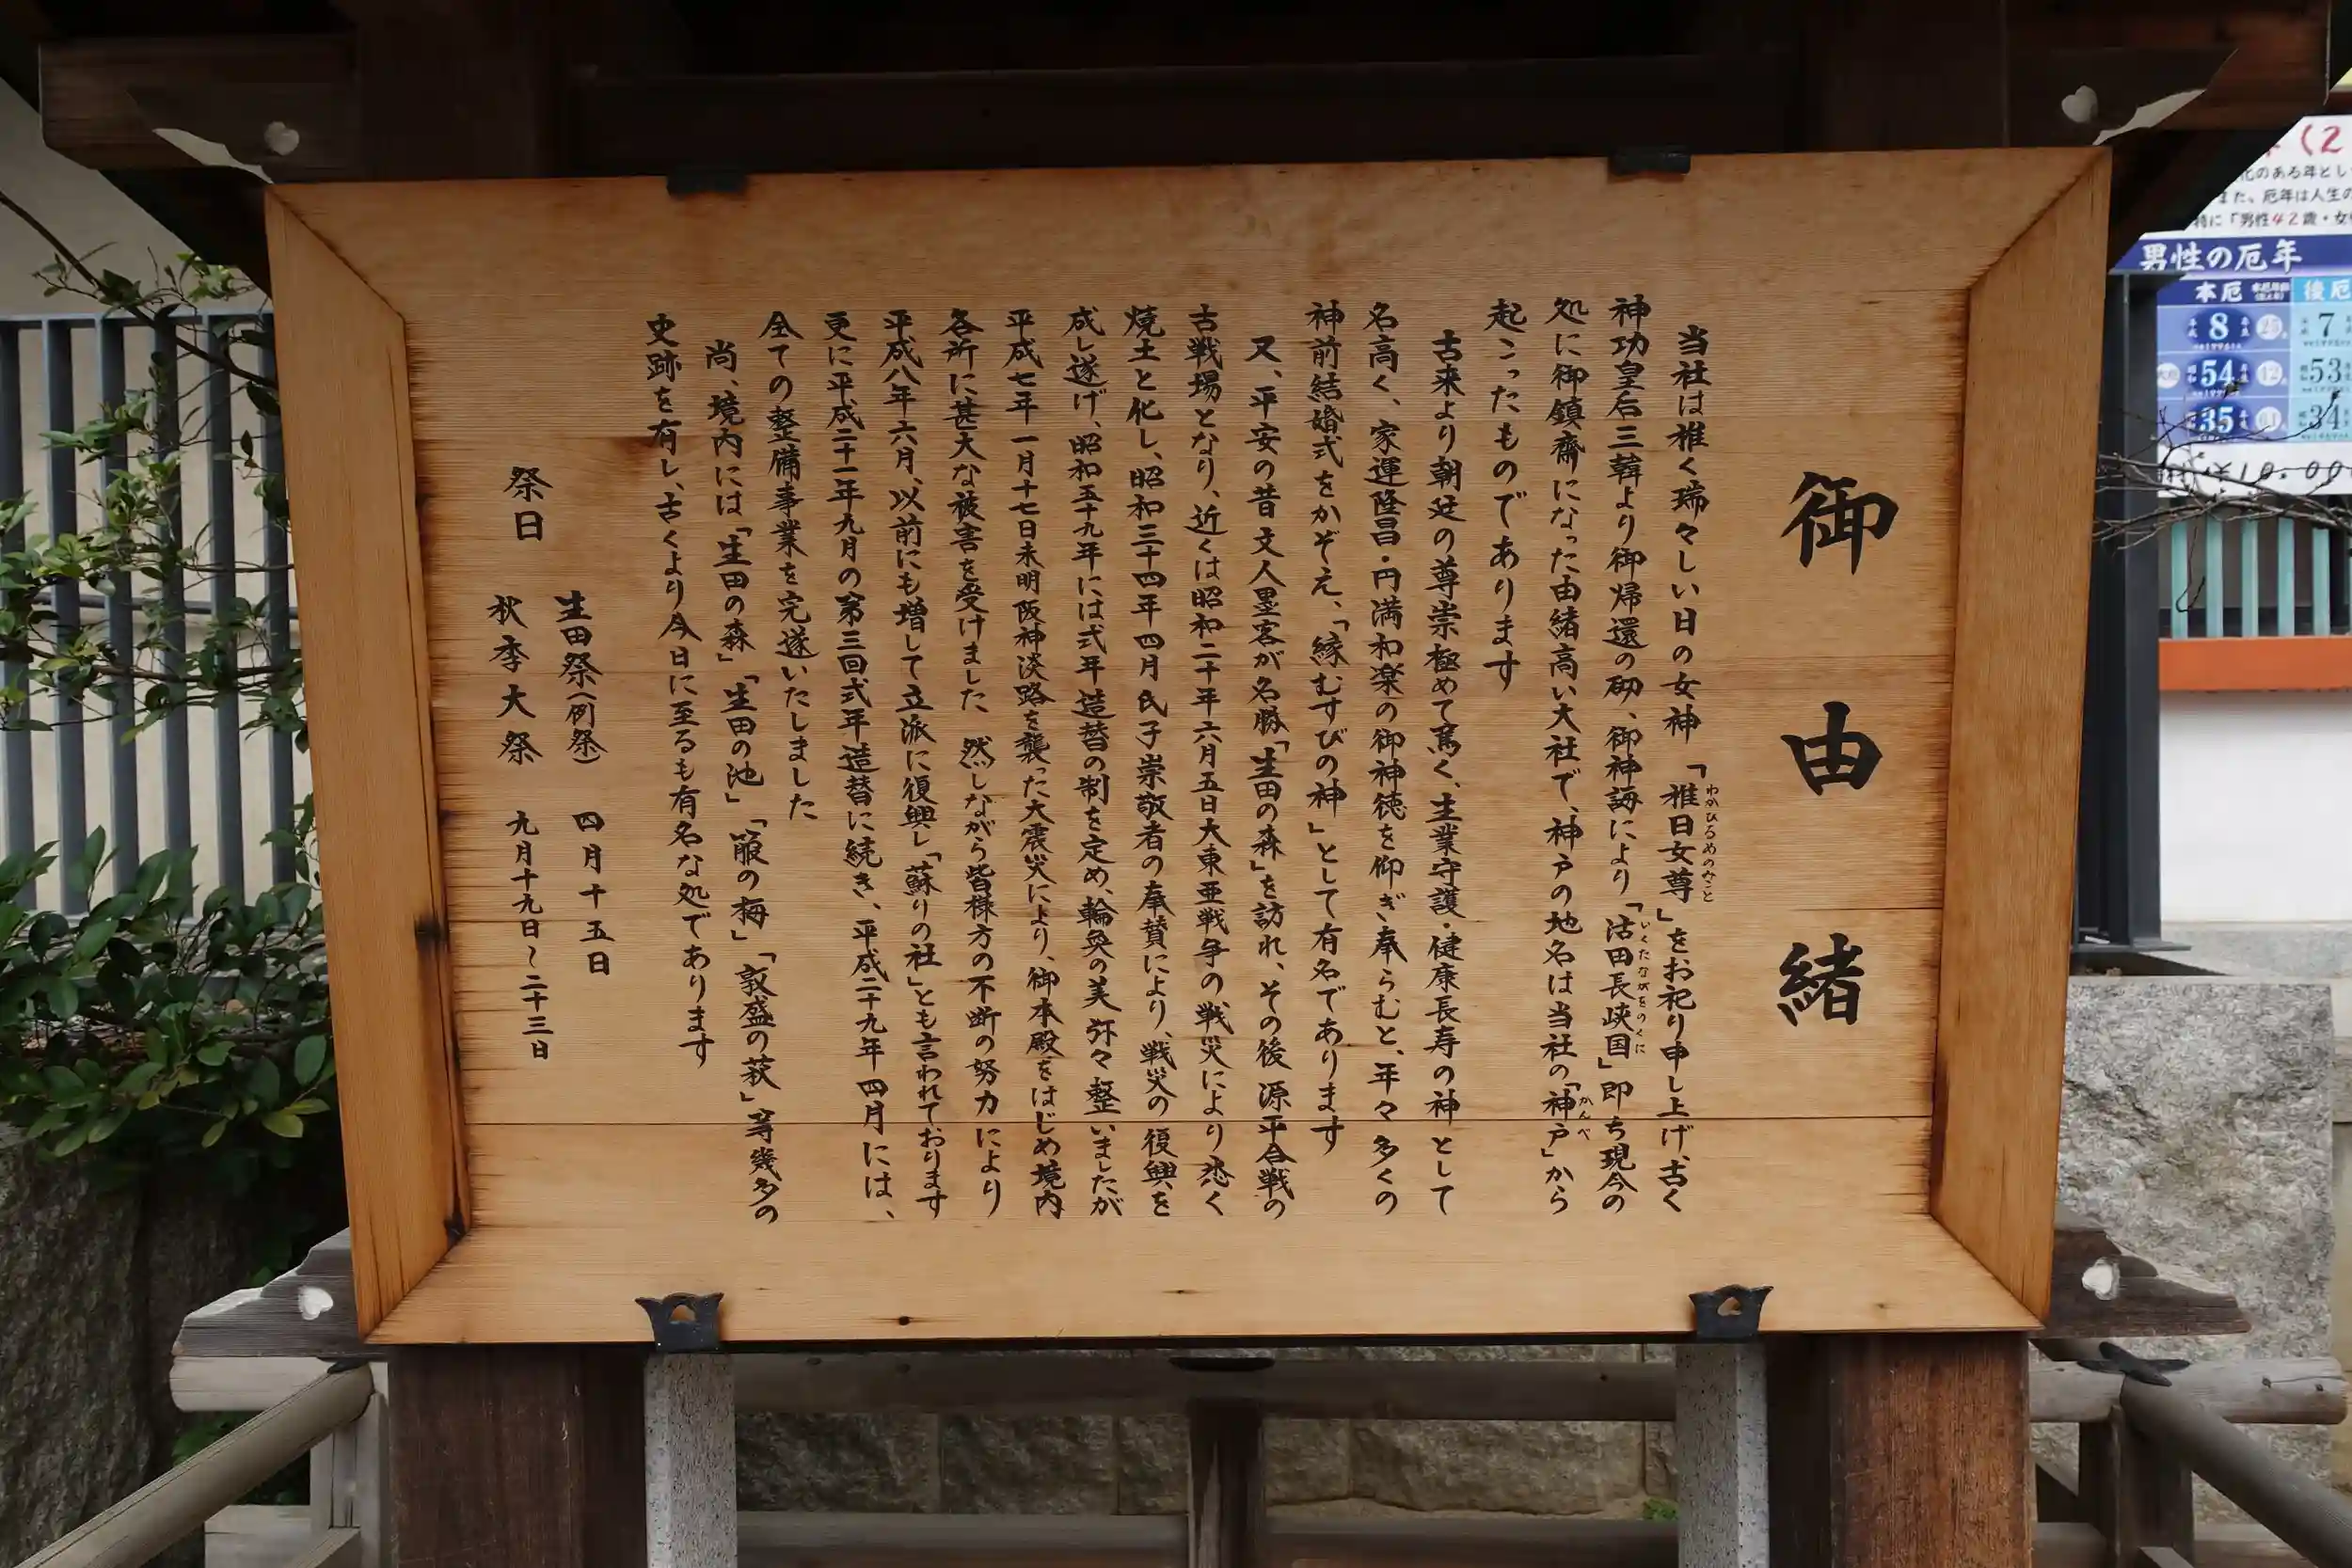 御由緒
当社は稚く瑞々しい日の女神 「稚日女尊」をお祀り申し上げ、古く
わかひるめのみこと
神功皇后三韓より御帰還の砌、御神誨により「活田長峡国」即ち現今の
いくたながをのくに
処に御鎮齋になった由緒高い大社で、神戸の地名は当社の「神戸」から
かんべ
起こったものであります
古来より朝廷の尊崇極めて篤く、生業守護・健康長寿の神として
名高く、家運隆昌・円満和楽の御神徳を仰ぎ奉らむと、年々多くの
神前結婚式をかぞえ、「縁むすびの神」として有名であります
又、平安の昔文人墨客が名勝「生田の森」を訪れ、その後源平合戦の
古戦場となり、近くは昭和二十年六月五日大東亜戦争の戦災により悉く
焼土と化し、昭和三十四年四月氏子崇敬者の奉賛により、戦災の復興を
成し遂げ、昭和五十九年には式年造替の制を定め、輪奐の美弥々整いましたが
平成七年一月十七日未明阪神淡路を襲った大震災により、御本殿をはじめ境内
各所に甚大な被害を受けました、然しながら皆様方の不断の努力により
平成八年六月、以前にも増して立派に復興し「蘇りの社」とも言われております
更に平成二十一年九月の第三回式年造替に続き、平成二十九年四月には、
全ての整備事業を完遂いたしました
尚、境内には「生田の森」「生田の池」「箙の梅」「敦盛の萩」等幾多の
史跡を有し、古くより今日に至るも有名な処であります
祭日
生田祭(例祭) 四月十五日
秋季大祭 九月十九日~二十三日
化のある年とし
また、厄年は人生の
特に「男性42歳・女
男性の厄年
本厄
後厄
8
7
54
53
35
34
¥10.00